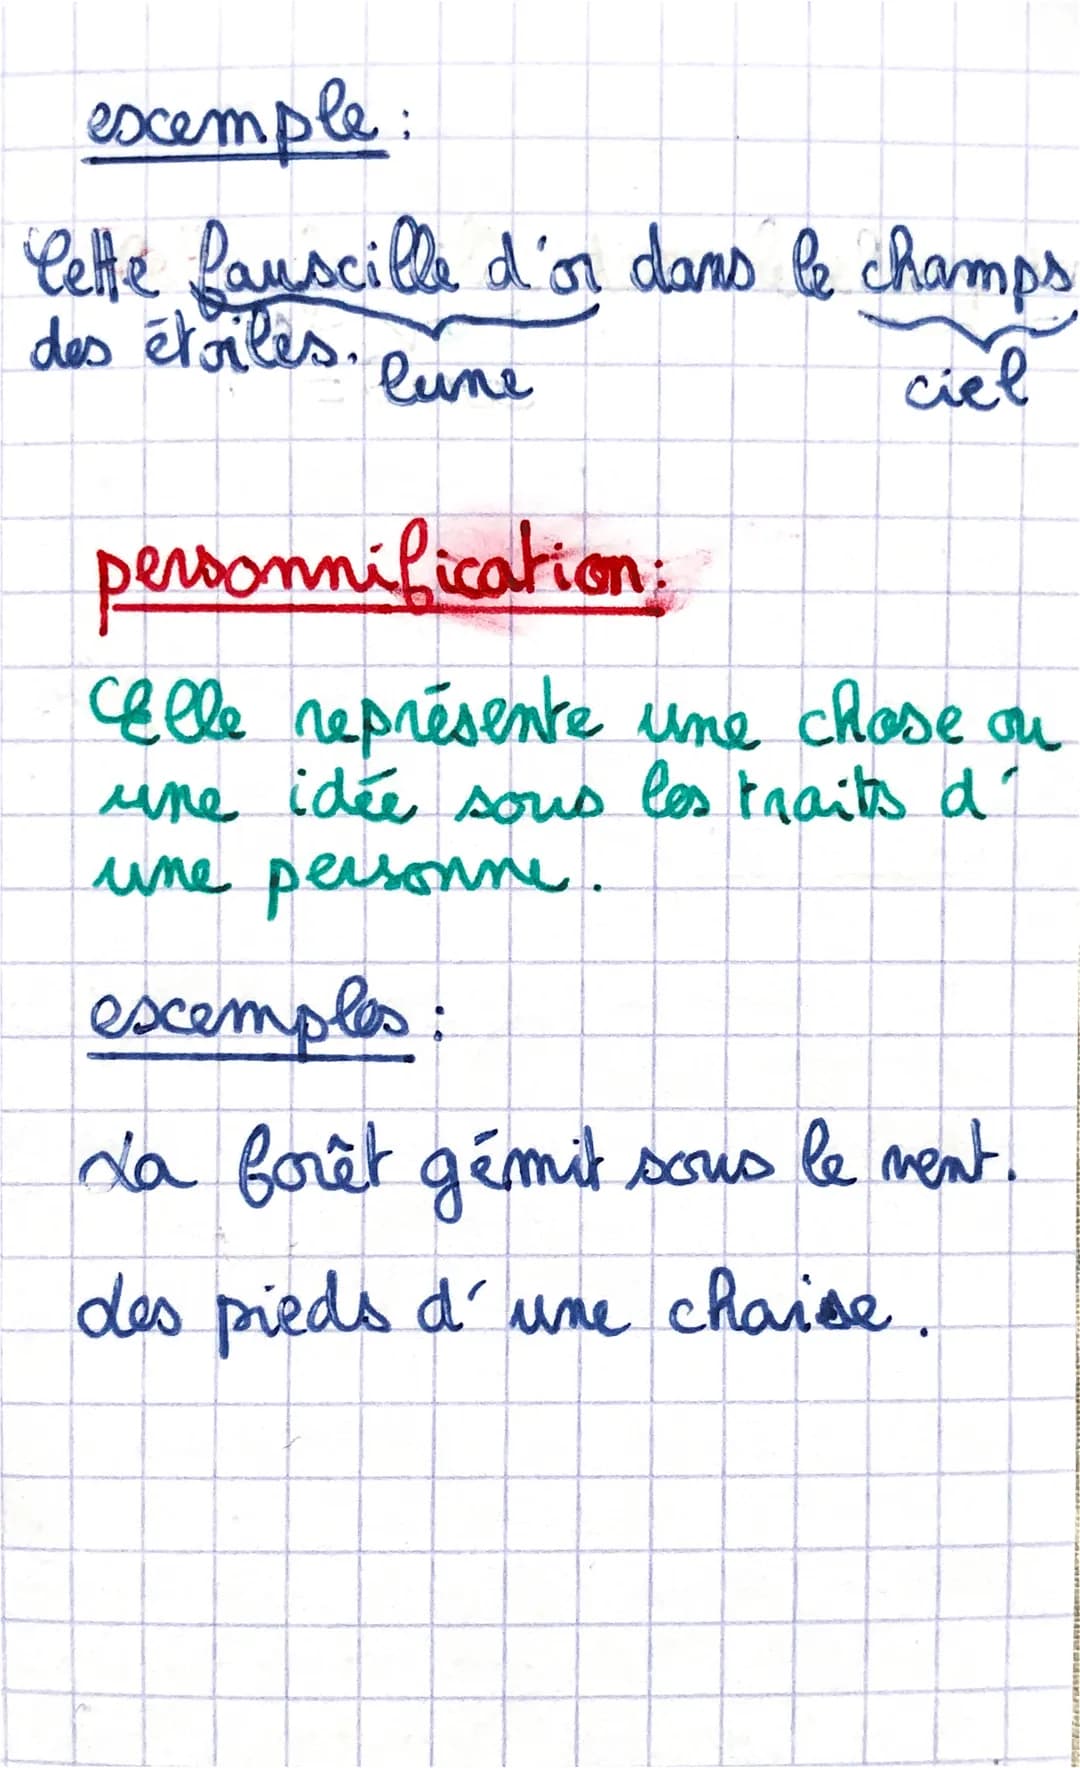 exemple :
Cette fauscille d'or dans le champs
des étoiles.
lune
ciel
personnification:
Elle représente une chose ou
une idée sous les traits d'
une personne.
exemples :
La forêt gémit sous le vent.
des pieds d'une chaise.